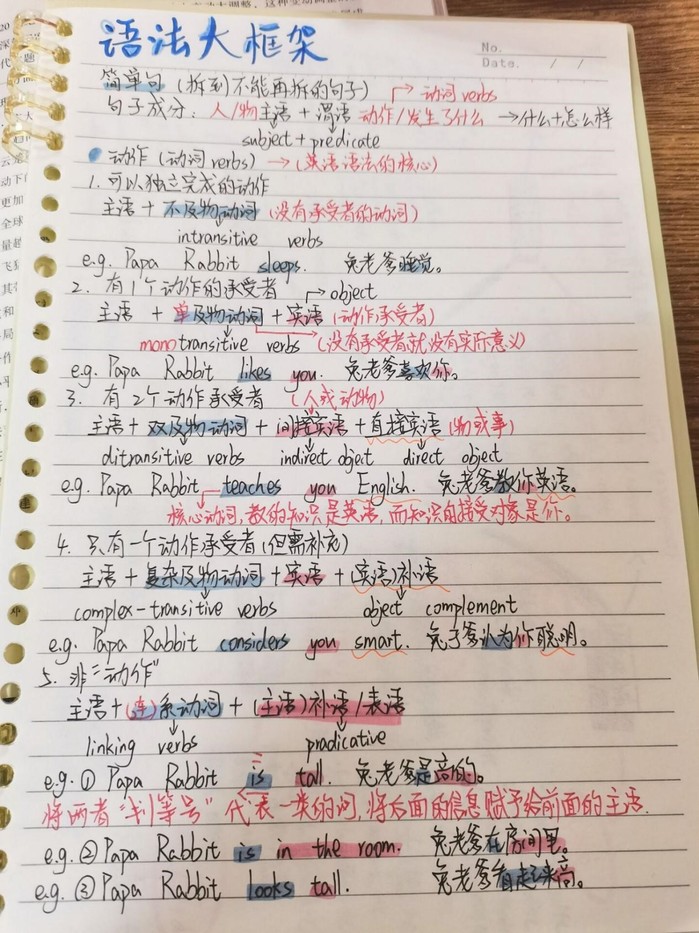 语法大框架
No.
Date. / /
简单句（拆到不能再拆的句子） → 动词 verbs
句子成分：人/物主语 + 谓语 动作/发生了什么 → 什么+怎么样
subject + predicate
动作（动词 verbs）→（英语语法的核心）
1. 可以独立完成的动作
主语 + 不及物动词（没有承受者的动词）
intransitive verbs
e.g. Papa Rabbit sleeps. 兔老爹睡觉。
2. 有1个动作的承受者 → object
主语 + 单及物动词 + 宾语（动作承受者）
monotransitive verbs （没有承受者就没有实际意义）
e.g. Papa Rabbit likes you. 兔老爹喜欢你。
3. 有2个动作承受者 （人或动物）
主语 + 双及物动词 + 间接宾语 + 直接宾语（物或事）
ditransitive verbs indirect object direct object
e.g. Papa Rabbit teaches you English. 兔老爹教你英语。
核心动词，教的知识是英语，而知识的接受对象是你。
4. 只有一个动作承受者（但需补充）
主语 + 复杂及物动词 + 宾语 + （宾语）补语
complex-transitive verbs object complement
e.g. Papa Rabbit considers you smart. 兔子爹认为你聪明。
5. 非“动作”
主语 + （连）系动词 + （主语）补语/表语
linking verbs pradicative
e.g. ① Papa Rabbit is tall. 兔老爹是高的。
将两者“划等号”代表一类的词，将后面的信息赋予给前面的主语.
e.g. ② Papa Rabbit is in the room. 兔老爹在房间里。
e.g. ③ Papa Rabbit looks tall. 兔老爹看起来高。